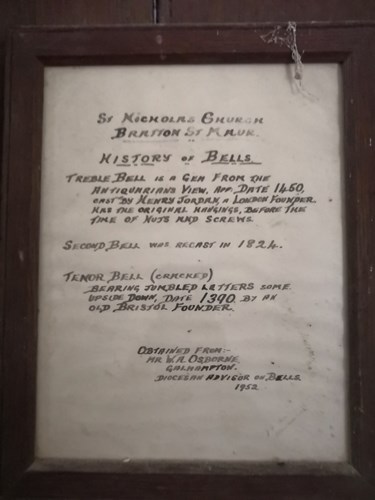 St Nicholas Church
Bratton St Maur.
History of Bells.
Treble Bell is a Gem From the
Antiquarians View, App. Date 1450,
cast by Henry Jordan, a London Founder
has the original hangings, before the
time of nuts and screws.
Second Bell was recast in 1824.
Tenor Bell (cracked)
Bearing jumbled letters some
upside down, Date 1390 by an
old Bristol Founder.
Obtained from:-
Mr W.A. Osborne,
Galhampton.
Diocesan Advisor on Bells
1952